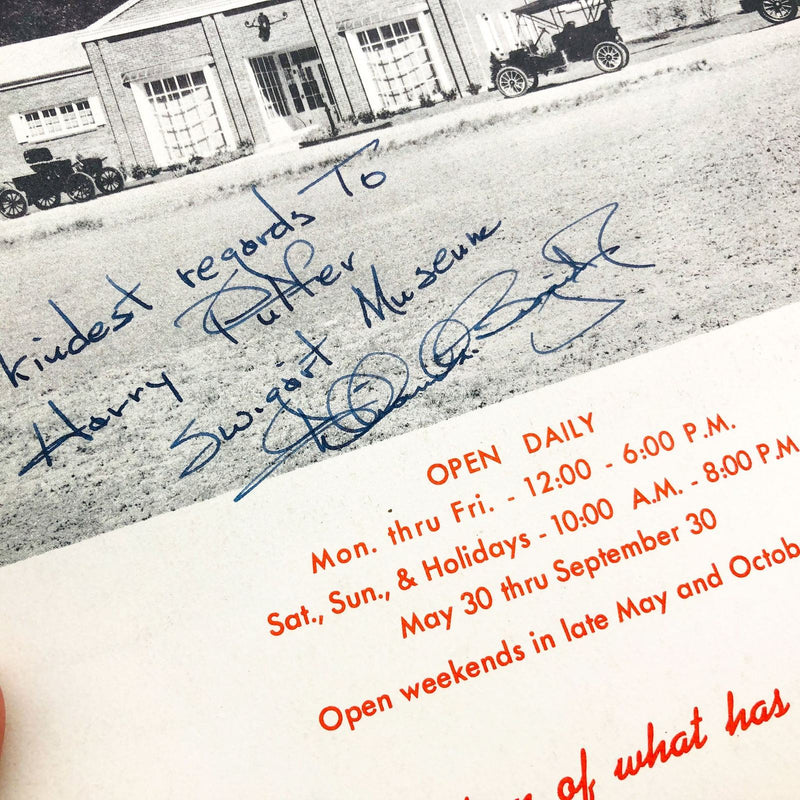 kindest regards To
Harry Puffer
Swigart Museum
OPEN DAILY
Mon. thru Fri. - 12:00 - 6:00 P.M.
Sat., Sun., & Holidays - 10:00 A.M. - 8:00 P.M
May 30 thru September 30
Open weekends in late May and Octob
of what has